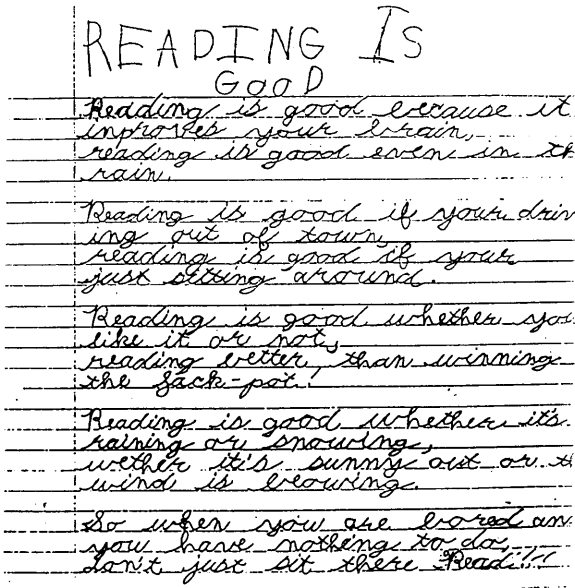 READING IS
GOOD
Reading is good because it
inproves your brain,
reading is good even in th
rain.
Reading is good if your driv
ing out of town,
reading is good if your
just sitting around.
Reading is good whether you
like it or not,
reading better, than winning
the jack-pot!
Reading is good whether it's
raining or snowing,
wether it's sunny out or th
wind is blowing.
So when you are bored an
you have nothing to do,
don't just sit there Read!!!